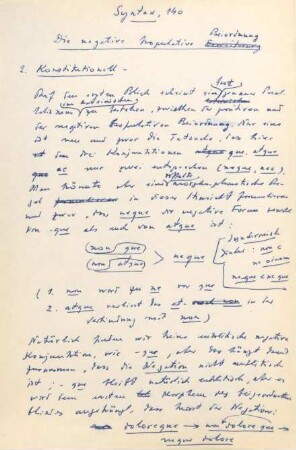 Syntax, 140
Beiordnung
Die negative Kopulative
2. Konstitutionell -
fast
Auf den ersten Blick scheint ein genauer Paral-
im Lateinischen
zu bestehen, zwischen der positiven und
der negativen Kopulativen Beiordnung. Nur eine
ist neu und zwar die Tatsache, dass hier
den drei Konjunktionen que, atque
ac nur zwei entsprechen (neque, nec).
Man könnte aber eine morphophonematische Re-
gel in dieser Hinsicht formulieren
und zwar, dass neque die negative Form sowohl
von -que als auch von atque ist:
non que
non atque
neque
neque neque
(1. non wird zu ne vor que
2. atque verliert das at- in der
Verbindung mit non)
Natürlich haben wir keine enklitische negative
Konjunktion, wie -que, aber das hängt damit
zusammen, dass die Negation nicht enklitisch
ist; -que bleibt natürlich enklitisch, aber es
wird dem ersten Morphem des
angehängt, das heisst der Negation:
doloreque → non doloreque →
neque dolore